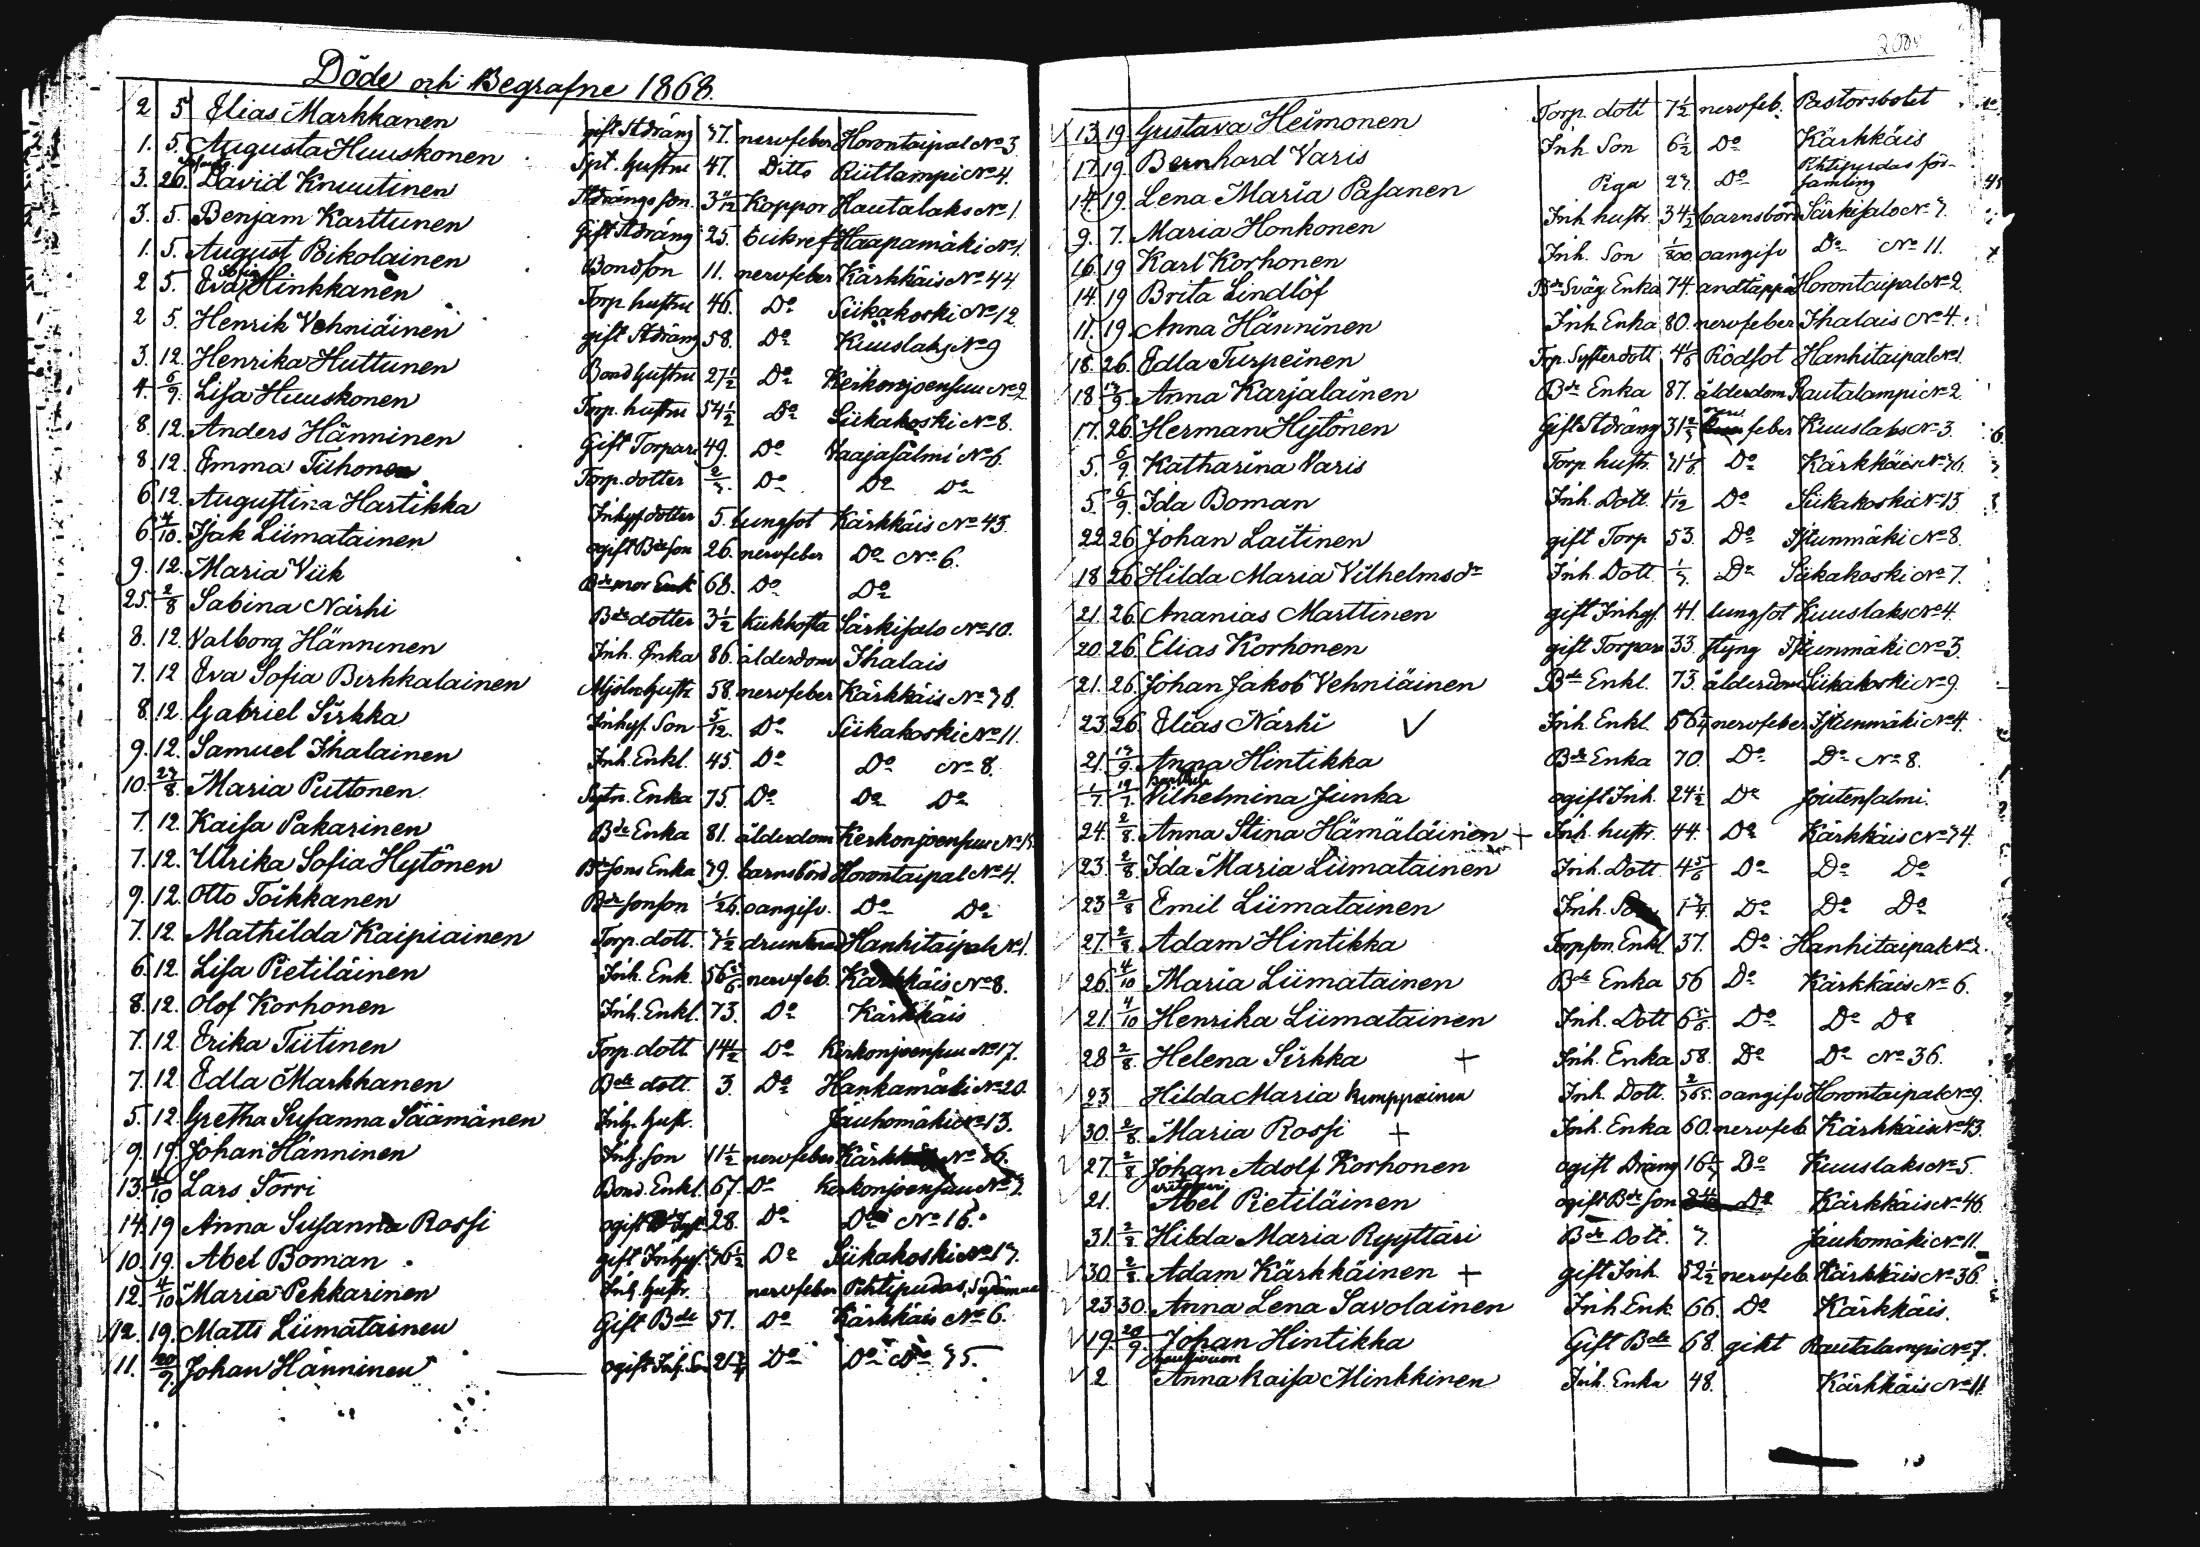 Döde och Begrafne 1868.
2 5 Elias Markkanen gift Stdräng 37. nervfeber Horontaipal No 3
1. 5. Augusta Huuskonen Spt. hustru 47. Ditto Riittlampi No 4.
3. 26. David Knuutinen Stdrängs son. 3 11/12 Koppor Hautalaks No 1.
3. 5. Benjam Karttunen Gift Stdräng 25. Haapamäki No 1.
1. 5. August Pikolainen Bondson 11. nervfeber Kärkkäis No 44
2 5. Eva Sofia Hinkkanen Torp. hustru 46. Do Siikakoski No 12.
2 5. Henrik Vehniäinen gift Stdräng 58. Do Kuuslaks No 9
3. 12. Henrika Huttunen Bond hustru 27 1/2 Do Kerkonjoensuu No 2.
4. 6/9. Lisa Huuskonen Torp. hustru 54 1/2 Do Siikakoski No 8.
8. 12. Anders Hänninen Gift Torpare 49. Do Vaajasalmi No 6.
8. 12. Emma Tiihonen Torp. dotter 2/3. Do Do Do
6. 12. Augustina Hartikka Inhys dotter 5. lungsot Kärkkäis No 45.
6 4/10. Isak Liimatainen ogift Bde son 26. nervfeber Do No 6.
9. 12. Maria Viik Bde mor Enk 68. Do Do
25. 2/8 Sabina Närhi Bde dotter 3 1/2 kikhosta Särkisalo No 10.
8. 12. Valborg Hänninen Inh. Enka 86. ålderdom Ihalais
7. 12 Eva Sofia Birkkalainen Mjöln. hustr. 58. nervfeber Kärkkäis No 38.
8. 12. Gabriel Sirkka Inhys. Son 5/12. Do Siikakoski No 11.
9. 12. Samuel Ihalainen Inh. Enkl. 45. Do Do No 8.
10. 27/8 Maria Puttonen Enka 75. Do Do Do
7. 12. Kaisa Pakarinen Bde Enka 81. ålderdom Kerkonjoensuu
7. 12. Ulrika Sofia Hytönen Bde sons Enka 39. barnsbörd Horontaipal No 4.
9. 12. Otto Toikkanen Bde sonson 1/26. oangifv. Do Do
7. 12. Mathilda Kaipiainen Torp. dott. 7 1/2 drunknad Hanhitaipale No 1.
6. 12. Lisa Pietiläinen Inh. Enk. 56 5/6 nervfeb. Kärkkäis No 8.
8. 12. Olof Korhonen Inh. Enkl. 73. Do Kärkkäis
7. 12. Erika Tiitinen Torp. dott 14 1/2 Do Kerkonjoensuu No 17.
7. 12 Edla Markkanen Bde dott. 3. Do Hankamäki No 20.
5. 12. Gretha Susanna Säämänen Inh. hustr. Jauhomäki No 13.
9. 19. Johan Hänninen Inh. son 11 1/2 nervfeber Kärkkäis No 36.
13. 4/10 Lars Sorri Bond. Enkl. 67. Do Kerkonjoensuu No 7.
14. 19 Anna Susanna Rossi ogift 28. Do Do No 16.
10. 19. Abel Boman gift Inhys. 76 1/2 Do Siikakoski No 17.
12. 4/10 Maria Pekkarinen Inh. hustr. nervfeber Pihtipudas,
12. 19. Matts Liimatainen Gift Bde 57. Do Kärkkäis No 6.
11. 20/9. Johan Hänninen ogift Inh. Son 21 Do Do Do 35.
13. 19. Gustava Heimonen Torp. dott 7 1/2 nervfeb. Pastorsbolet
17. 19. Bernhard Varis Inh. Son 6 1/2 Do Kärkkäis
14. 19. Lena Maria Pasanen Piga 27. Do Pihtipudas församling
9. 7. Maria Honkonen Inh. hustr. 34 1/2 barnsbörd Särkisalo No 7.
16. 19 Karl Korhonen Inh. Son oangifv Do No 11.
14. 19 Brita Lindlöf Bde Sväg. Enka 74. andtäppa Horontaipal No 2.
11. 19. Anna Hänninen Inh. Enka 80. nervfeber Ihalais No 4.
18. 26. Edla Turpeinen Torp. Systerdott 4 1/6 Rödsot Hanhitaipal No 1.
18. Anna Karjalainen Bde Enka 87. ålderdom Rautalampi No 2.
17. 26. Herman Hytönen Gift Stdräng 31 2/3 feber Kuuslaks No 3.
5. 6/9. Katharina Varis Torp. hustr. 31 1/6. Do Kärkkäis No 36.
5. 6/9. Ida Boman Inh. Dott. 1 1/12 Do Siikakoski No 13.
22 26. Johan Laitinen gift Torp 53. Do Istunmäki No 8.
18 26. Hilda Maria Vilhelmsdr Inh. Dott. Do Siikakoski No 7.
21. 26. Ananias Marttinen gift Inhys. 41. lungsot Kuuslaks No 4.
20. 26. Elias Korhonen gift Torpare 33. styng Istunmäki No 3.
21. 26. Johan Jakob Vehniäinen Bde Enkl. 73. ålderdom Siikakoski No 9.
23 26. Elias Närhi Inh. Enkl. 56 1/4 nervfeber Istunmäki No 4.
21. Anna Hintikka Bde Enka 70. Do Do No 8.
1/7 Vilhelmina Junka ogift Inh. 24 1/2 Do Joutensalmi.
24. 2/8. Anna Stina Hämäläinen + Inh. hustr. 44. Do Kärkkäis No 34.
23. 2/8. Ida Maria Liimatainen Inh. Dott. 4 5/6 Do Do Do
23 2/8 Emil Liimatainen Inh. Son 1 3/4 Do Do Do
27. 2/8. Adam Hintikka Torpson. Enkl. 37. Do Hanhitaipale No 2.
26. 4/10 Maria Liimatainen Bde Enka 56 Do Kärkkäis No 6.
21. 4/10 Henrika Liimatainen Inh. Dott 6 5/6. Do Do Do
28 2/8. Helena Sirkka + Inh. Enka 58. Do Do No 36.
23 Hilda Maria Kumppainen Inh. Dott. 2/365. oangifv Horontaipale No 9.
30. 2/8. Maria Rossi + Inh. Enka 60. nervfeb. Kärkkäis No 43.
27. 2/8 Johan Adolf Korhonen ogift Dräng 16 Do Kuuslaks No 5.
21. Abel Pietiläinen ogift Bde son Do Kärkkäis No 46.
31. 2/8. Hilda Maria Ryyttäri Bde Dott. 7. Jauhomäki No 11.
30. 2/8. Adam Kärkkäinen + gift Inh. 52 1/2 nervfeb. Kärkkäis No 36.
23 30. Anna Lena Savolainen Inh Enk. 66. Do Kärkkäis.
19. 20/9. Johan Hintikka Gift Bde 68. gikt Rautalampi No 7.
2 Anna Kaisa Minkkinen Inh. Enka 48. Kärkkäis No 11.